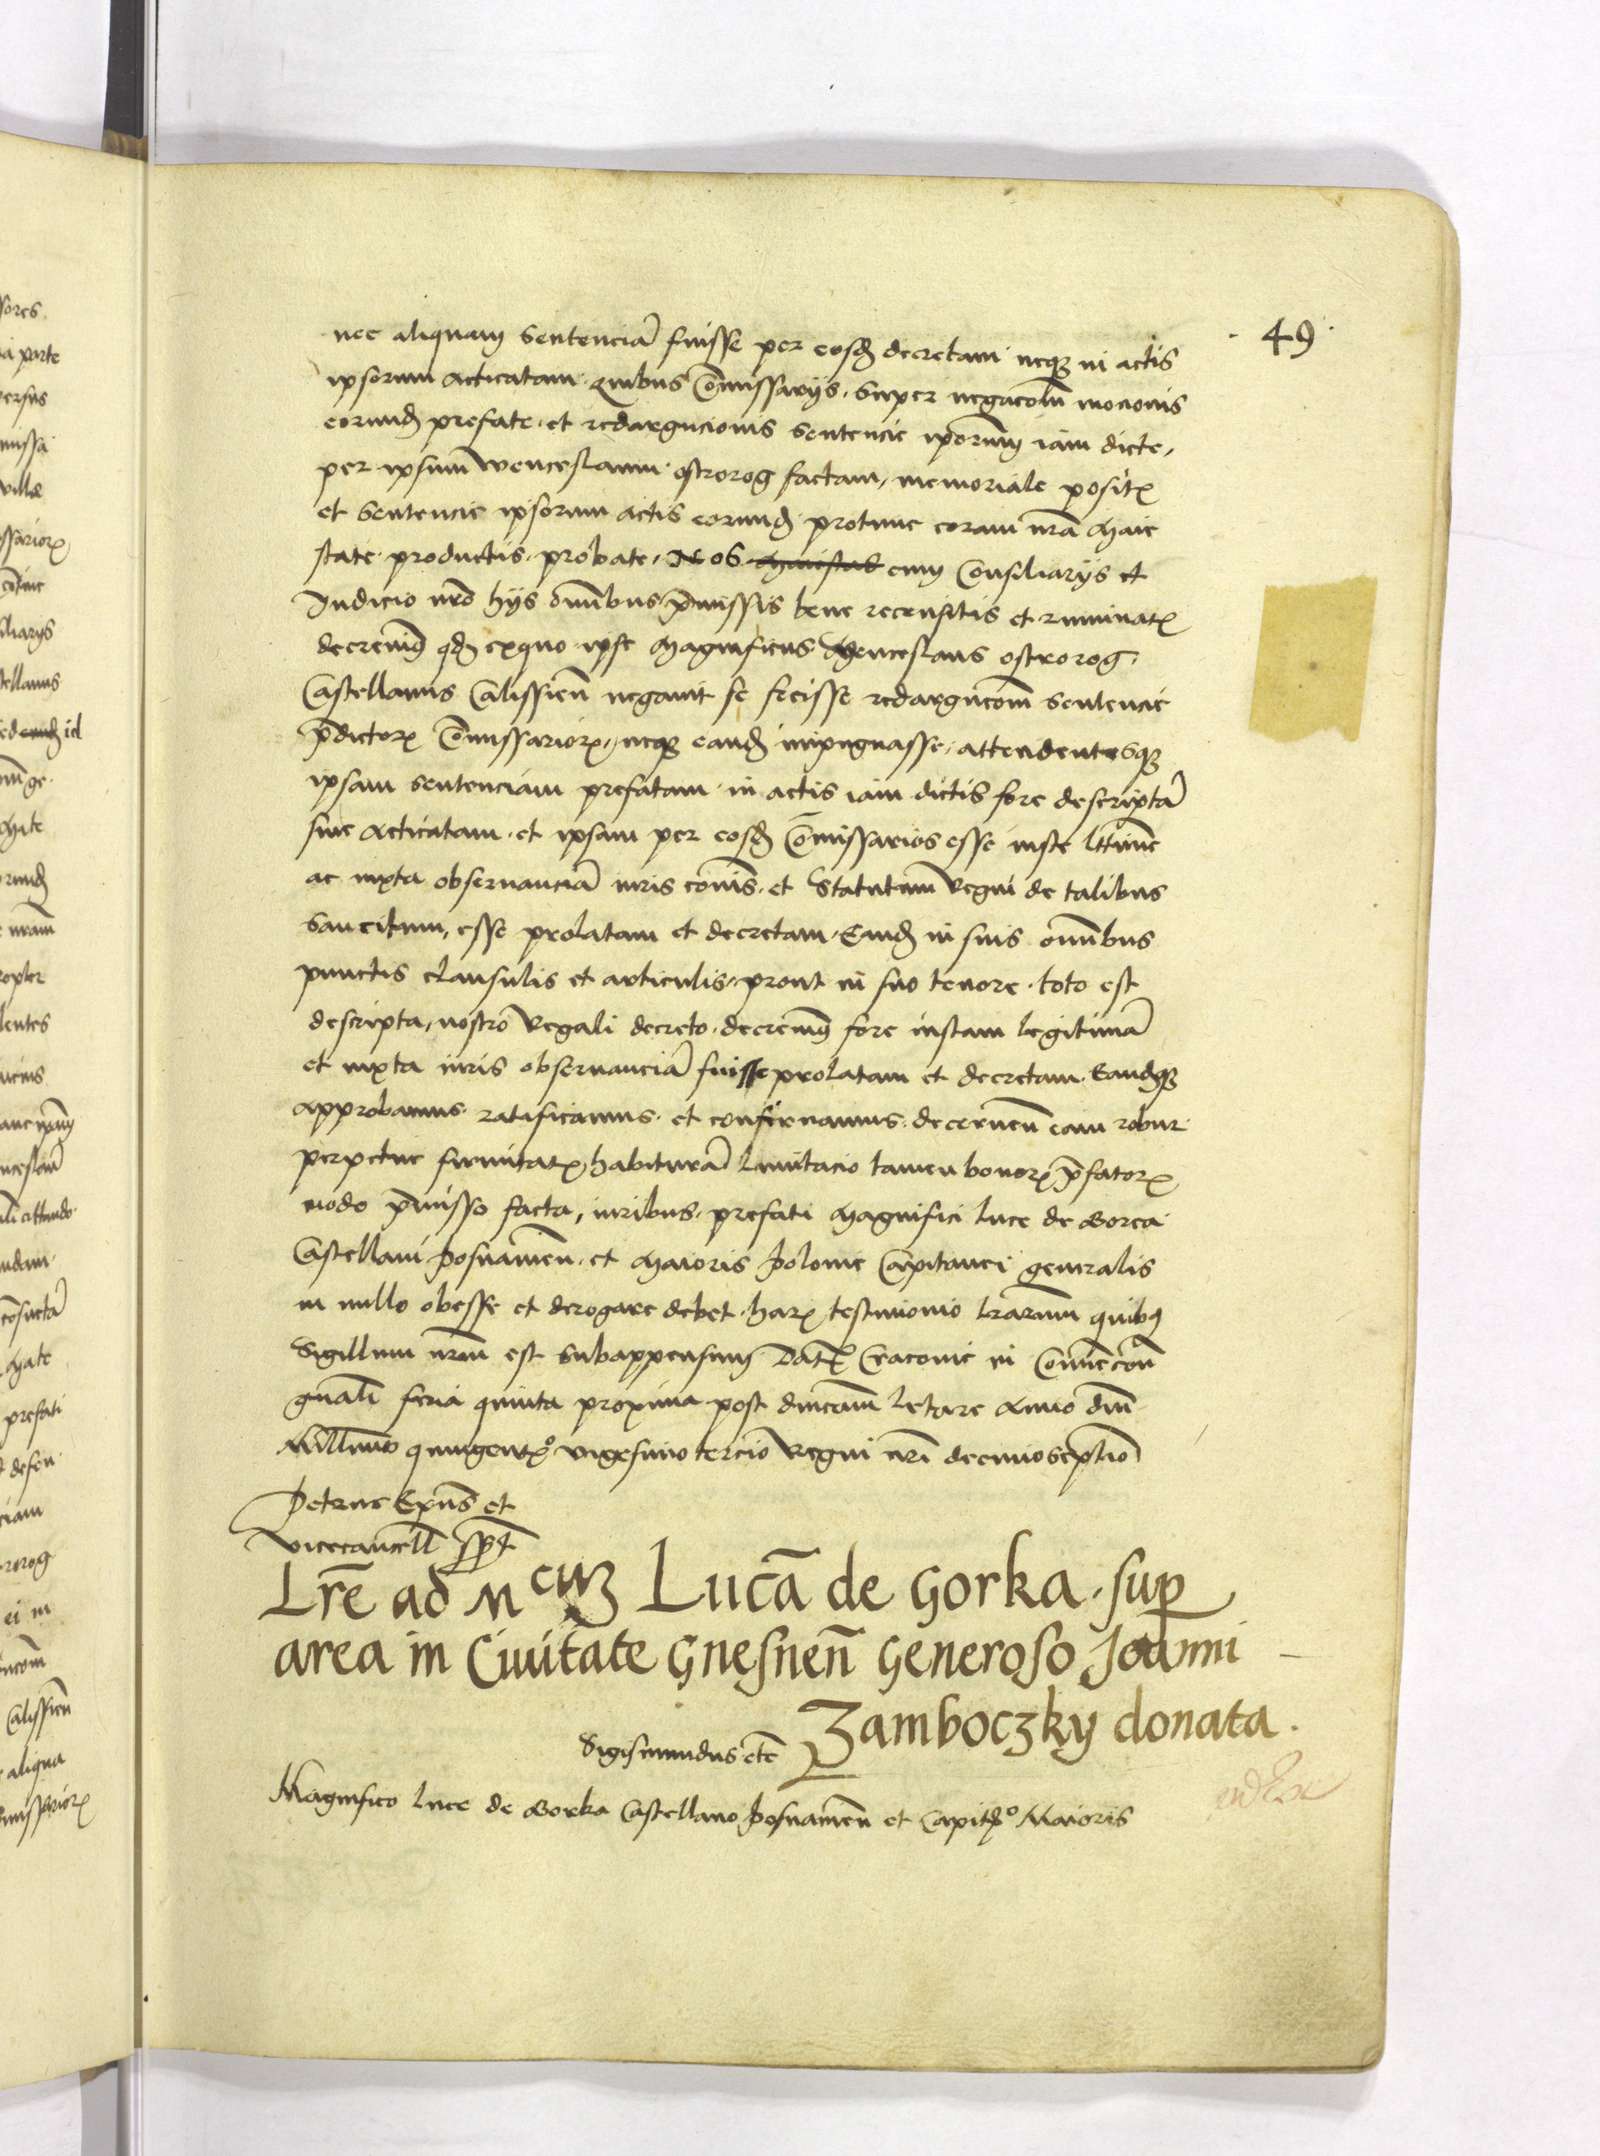 49
nec aliquam sentenciā fuisse per eosđ decretam neqꝫ in actis
ipsorum acticatam. Quibus Cōmissarijs. super negacōm mocionis
eorundꝫ prefate. et redargucionis sentencie ipsorum iam dicte,
per ipsum wenceslaum ostrorog factam, memoriale positꝫ
et sentencie ipsorum actis eorundꝫ protunc coram nr̄a Maie
state productis. probate. Nos cum Consiliarijs et
Judicio nr̄o hijs om̄ibus p̄missis bene recensitis et ruminatꝫ
decreuim9 qđ exquo ipse Magnificus Wenceslaus ostrorog.
Castellanus Calissien̄ negauit se fecisse redargucōm sentencie
p̄dictorꝫ Cōmissariorꝫ, neqꝫ eandꝫ impugnasse. attendentesqꝫ
ipsam sentenciam prefatam in actis iam dictis fore descriptā
siue acticatam. et ipsam per eosđ Cōmissarios esse iuste lttime
ac iuxta obseruanciā iuris cōmis. et Statutum Regni de talibus
sancitum, esse prolatam et decretam. Eandꝫ in suis om̄ibus
punctis clausulis et articulis. prout in suo tenore toto est
descripta, nostro Regali decreto decreuim9 fore iustam legitimā
et iuxta iuris obseruanciā fuisse prolatam et decretam. Eandꝫqꝫ
approbamus ratificamus. et confirmamus. decernen̄ eam robur
perpetue firmitatꝫ habiturā Limitacio tamen bonorꝫ p̄fatorꝫ
modo p̄misso facta, iuribus prefati Magnifici Luce de Gorca
Castellani Posnanien̄. et Maioris Polonie Capitanei generalis
in nullo obesse et derogare debet. harꝫ testimonio lr̄arum quibꝯ
Sigillum nr̄m est subappensum Datꝫ Cracovie in Conuencōn
gn̄ali feria quinta proxima post dn̄icam Letare Anno dn̄i
Mill̄imo quingentꝫo vigesimo tercio Regni nr̄i decimoseptīo
Petrus Ep̄us et
vicecancell̄ sspt̄
Lr̄e ad Mcuꝫ Lucā de Gorka. sup
area in Ciuitate Gnesnen̄ Generoso Joanni
Zamboczky donata.
Sigismundus etc̄
Magnifico Luce de Gorka Castellano Posnanien̄ et Capitꝫo Maioris